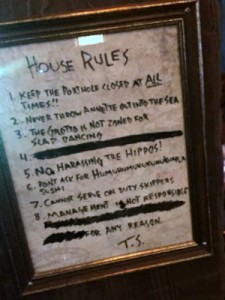 HOUSE RULES
1. KEEP THE PORTHOLE CLOSED AT ALL
TIMES!!
2. NEVER THROW ANYTHING OUT INTO THE SEA
3. THE GROTTO IS NOT ZONED FOR
SLAP DANCING
4.
5. NO HARASSING THE HIPPOS!
6. DON'T ASK FOR
SUSHI
7. CANNOT SERVE ON DUTY SKIPPERS
8. MANAGEMENT IS NOT RESPONSIBLE
FOR ANY REASON.
T.S.